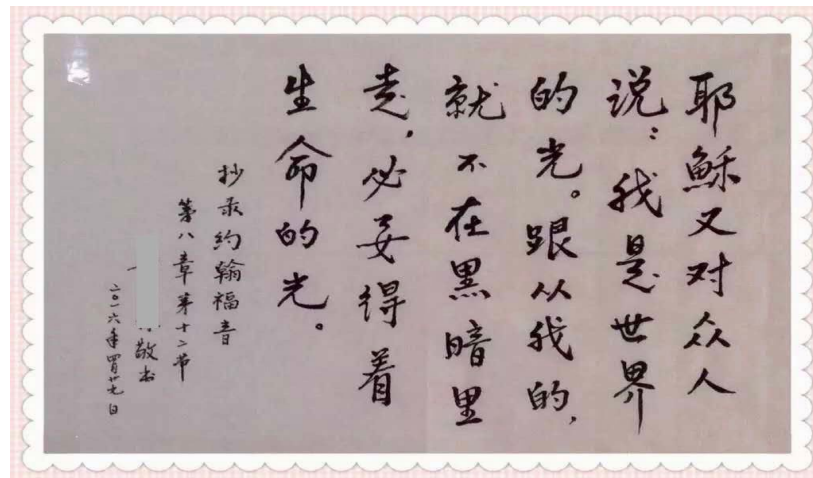 耶稣又对众人
说：我是世界
的光。跟从我的，
就不在黑暗里
走，必要得着
生命的光。
抄录约翰福音
第八章第十二节
敬书
二〇一六年四月廿九日